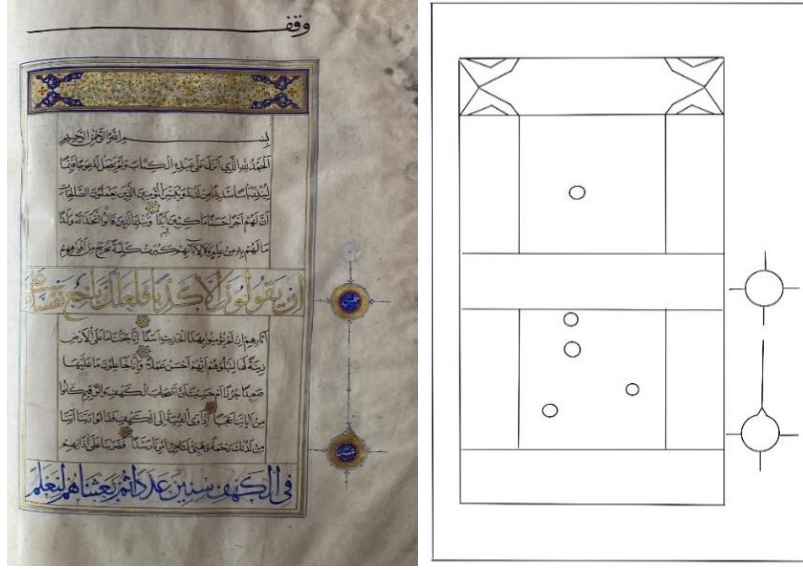 وقف
بسم الله الرحمن الرحيم
الحمد لله الذي انزل على عبده الكتاب ولم يجعل له عوجا قيما
لينذر باسا شديدا من لدنه ويبشر المؤمنين الذين يعملون الصالحات
ان لهم اجرا حسنا ماكثين فيه ابدا وينذر الذين قالوا اتخذ الله ولدا
ما لهم به من علم ولا لآبائهم كبرت كلمة تخرج من افواههم
ان يقولون الا كذبا فلعلك باخع نفسك على
آثارهم ان لم يؤمنوا بهذا الحديث اسفا انا جعلنا ما على الارض
زينة لها لنبلوهم ايهم احسن عملا وانا لجاعلون ما عليها
صعيدا جرزا ام حسبت ان اصحاب الكهف والرقيم كانوا
من آياتنا عجبا اذ اوى الفتية الى الكهف فقالوا ربنا آتنا
من لدنك رحمة وهيئ لنا من امرنا رشدا فضربنا على آذانهم
في الكهف سنين عددا ثم بعثناهم لنعلم
خمس
عشر